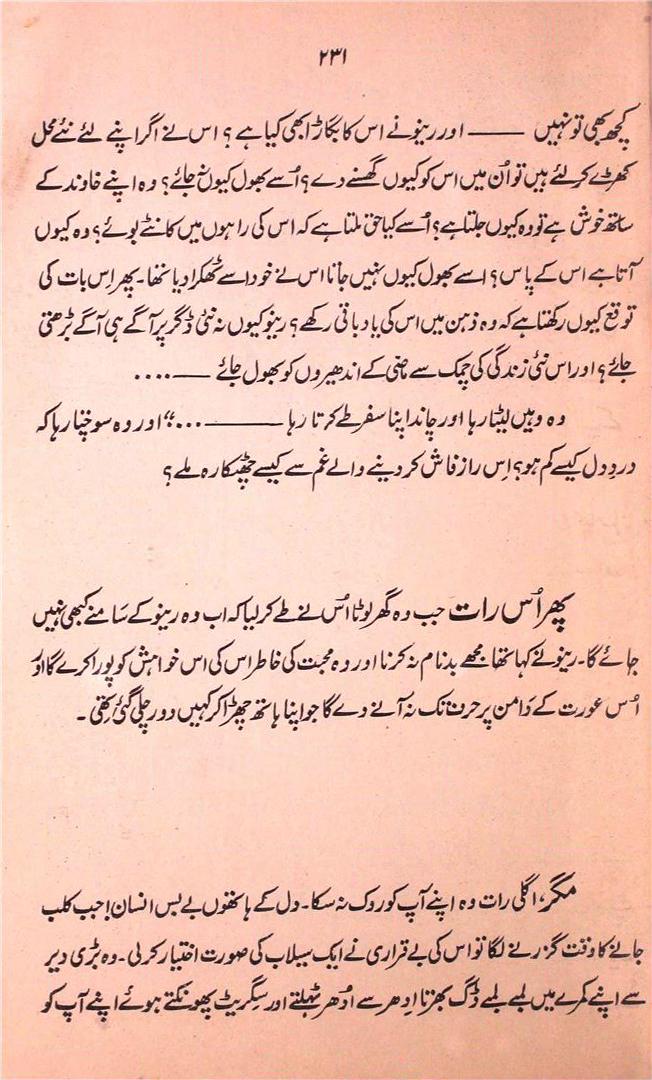 ۲۳۱
کچھ بھی تو نہیں ——— اور رینو نے اس کا بگاڑا بھی کیا ہے ؟ اس نے اگر اپنے لئے نئے محل
کھڑے کر لئے ہیں تو اُن میں اس کو کیوں گھسنے دے ؟ اُسے بھول کیوں نہ جائے ؟ وہ اپنے خاوند کے
ساتھ خوش ہے تو وہ کیوں جلتا ہے ؟ اُسے کیا حق ملتا ہے کہ اس کی راہوں میں کانٹے بوئے ؟ وہ کیوں
آتا ہے اس کے پاس ؟ اسے بھول کیوں نہیں جاتا اس نے خود اسے ٹھکرا دیا تھا ۔ پھر اِس بات کی
توقع کیوں رکھتا ہے کہ وہ ذہن میں اس کی یاد باقی رکھے ؟ رینو کیوں نہ نئی ڈگر پر آگے ہی آگے بڑھتی
جائے ؟ اور اس نئی زندگی کی چمک سے ماضی کے اندھیروں کو بھول جائے ——....
وہ وہیں لیٹا رہا اور چاند اپنا سفر طے کرتا رہا ———...“ اور وہ سوچتا رہا کہ
دردِ دل کیسے کم ہو ؟ اِس راز فاش کر دینے والے غم سے کیسے چھٹکارہ ملے ؟
پھر اُس رات جب وہ گھر لوٹا اُس نے طے کر لیا کہ اب وہ رینو کے سامنے کبھی نہیں
جائے گا ۔ رینو نے کہا تھا مجھے بدنام نہ کرنا اور وہ محبت کی خاطر اس کی اس خواہش کو پورا کرے گا اور
اُس عورت کے دَامن پر حرف تک نہ آنے دے گا جو اپنا ہاتھ چھڑا کر کہیں دور چلی گئی تھی ۔
مگر، اگلی رات وہ اپنے آپ کو روک نہ سکا ۔ دل کے ہاتھوں بے بس انسان ! جب کلب
جانے کا وقت گزرنے لگا تو اس کی بے قراری نے ایک سیلاب کی صورت اختیار کر لی ۔ وہ بڑی دیر
سے اپنے کمرے میں لمبے لمبے ڈگ بھرتا اِدھر سے اُدھر ٹہلتے اور سگریٹ پھونکتے ہوئے اپنے آپ کو